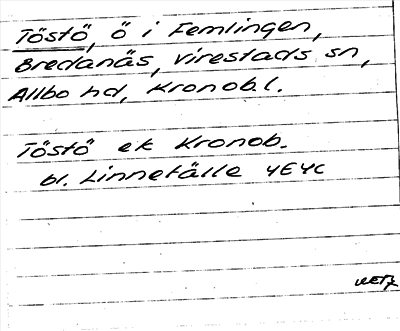 Töstö, ö i Femlingen,
Bredanäs, Virestads sn,
Allbo hd, Kronob.l.
Töstö ek Kronob.
bl. Linnefälle 4E4c